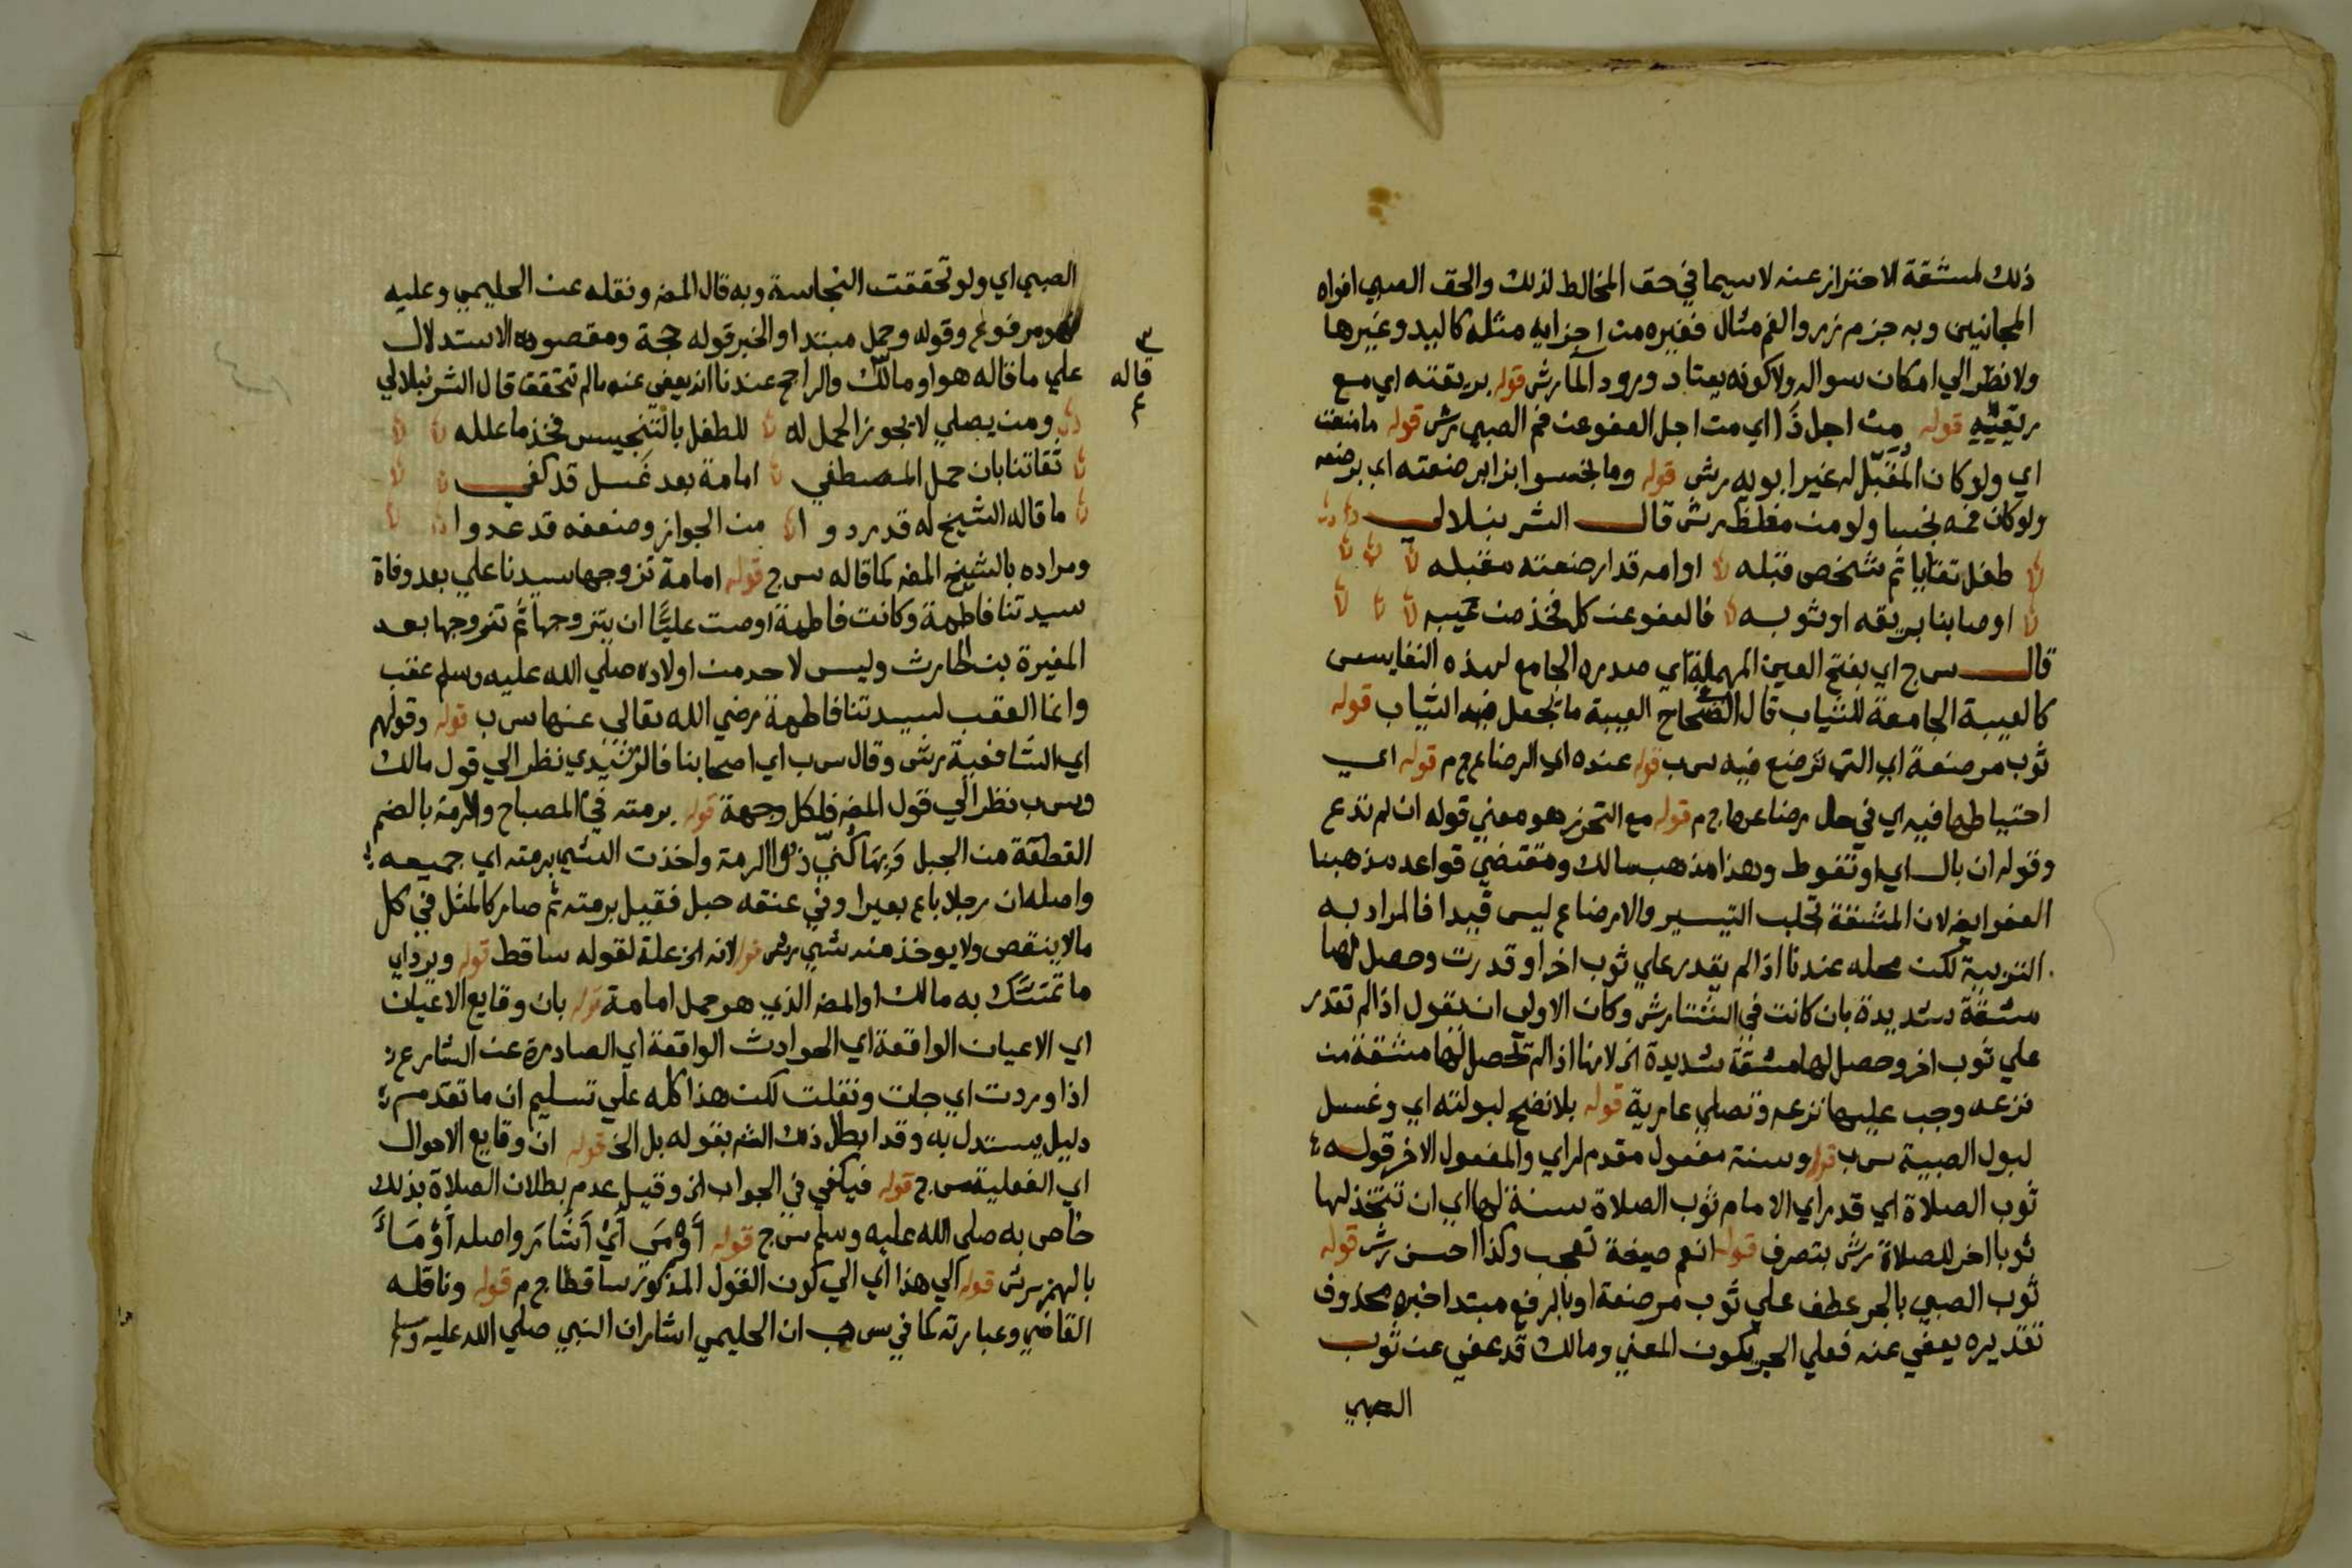 ذلك لمشقة الاحتراز عنه لاسيما في حق المخالط لذلك والحق الصبي افواه
المجانين وبه جزم زر والفم مثال فغيره من اجزايه مثله كاليد وغيرها
ولا نظر الي امكان سواله ولا كونه يعتاد ورود الما رش قوله بريقته اي مع
ريقته قوله من اجل ذا اي من اجل العفو عن فم الصبي رش قوله ما منعت
اي ولو كان المقبل له غير ابويه رش قوله وما نجسوا بزا برضعته اي برضعه
ولو كان فمه نجسا ولو من مغلظ رش قال الشرنبلالي
طفل تقايا ثم شخص قبله اوامه قد ارضعته مقبله
او صابنا بريقه او ثوبه فالعفو عن كل فخذ من عيبه
قال س ج اي بفتح العين المهملة اي صدره الجامع لهذه النفايس
كالعيبة الجامعة للثياب قال الصحاح العيبة ما تجعل فيه الثياب قوله
ثوب مرضعة اي التي ترضع فيه س ب قوله عنده اي الرضاع ج م قوله اي
احتياطها فيه اي في حال رضاعها ج م قوله مع التحرز هو معني قوله ان لم تدع
وقوله ان بال اي او تغوط وهذا مذهب مالك ومقتضي قواعد مذهبنا
العفو ايضا لان المشقة تجلب التيسير والارضاع ليس قيدا فالمراد به
التربية لكن محله عندنا اذا لم يقدر علي ثوب اخر او قدرت وحصل لها
مشقة شديدة بان كانت في الشتا رش وكان الاولي ان تقول اذا لم تقدر
علي ثوب اخر وحصل لها مشقة شديدة الخ لانها اذا لم تحصل لها مشقة من
نزعه وجب عليها نزعه وتصلي عارية قوله بلا نضح لبولته اي وغسل
لبول الصبية س ب قوله وسنة مفعول مقدم لراي والمفعول الاخر قوله
ثوب الصلاة اي قد راي الامام ثوب الصلاة سنة لها اي ان تتخذ لها
ثوبا اخر للصلاة رش بتصرف قوله انعم صيغة تعجب وكذا احسن رش قوله
ثوب الصبي بالجر عطف علي ثوب مرضعة او بالرفع مبتدا خبره محذوف
تقديره يعفي عنه فعلي الجر يكون المعني ومالك قد عفي عن ثوب
الصبي
الصبي اي ولو تحققت النجاسة وبه قال المص ونقله عن الحليمي وعليه
فهو مرفوع وقوله وحمل مبتدا والخبر قوله حجة ومقصوده الاستدلال
قاله
علي ما قاله هو او مالك والراجح عندنا انه يعفي عنه مالم تتحقق قال الشرنبلالي
ومن يصلي لا يجوز الحمل له للطفل بالتنجيس فخذ ما علله
ثقاتنا بان حمل المصطفي امامة بعد غسل قد كفي
ما قاله الشيخ له قد ردوا من الجواز وضعفه قد عدوا
ومراده بالشيخ المص كما قاله س ج قوله امامة تزوجها سيدنا علي بعد وفاة
سيدتنا فاطمة وكانت فاطمة اوصت عليا ان يتزوجها ثم تزوجها بعد
المغيرة بن الحارث وليس لاحد من اولاده صلي الله عليه وسلم عقب
وانما العقب لسيدتنا فاطمة رضي الله تعالي عنها س ب قوله وقولهم
اي الشافعية رش وقال س ب اي اصحابنا فالرشيدي نظر الي قول مالك
وس ب نظر الي قول المص فلكل وجهة قوله برمته في المصباح والرمة بالضم
القطعة من الحبل وبها كني ذو الرمة واخذت الشي برمته اي جميعه
واصله ان رجلا باع بعيرا وفي عنقه حبل فقيل برمته ثم صار كالمثل في كل
مالا ينقص ولا يوخذ منه شي رش قوله لانه الخ علة لقوله ساقط قوله ويرد اي
ما تمسك به مالك او المص الذي هو حمل امامة قوله بان وقايع الاعيان
اي الاعيان الواقعة اي الحوادث الواقعة اي الصادرة عن الشارع
اذا وردت اي جات ونقلت لكن هذا كله علي تسليم ان ما تقدم
دليل يستدل به وقد ابطل ذلك الش بقوله بل الخ قوله ان وقايع الاحوال
اي الفعلية س ج قوله فيكفي في الجواب الخ وقيل عدم بطلان الصلاة بذلك
خاص به صلي الله عليه وسلم س ج قوله أومى أي أشار واصله أومأ
بالهمز رش قوله الي هذا اي الي كون القول المذكور ساقطا ج م قوله وناقله
القاضي وعبارته كما في س ب ان الحليمي اشار ان النبي صلي الله عليه وسلم